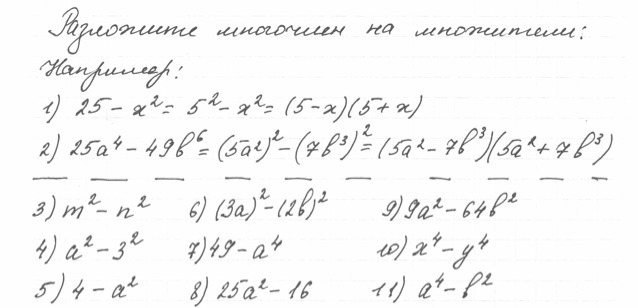 Разложите многочлен на множители:
Например:
1) 25 - x² = 5² - x² = (5-x)(5+x)
2) 25a⁴ - 49b⁶ = (5a²)² - (7b³)² = (5a² - 7b³)(5a² + 7b³)
3) m² - n² 6) (3a)² - (2b)² 9) 9a² - 64b²
4) a² - 3² 7) 49 - a⁴ 10) x⁴ - y⁴
5) 4 - a² 8) 25a² - 16 11) a⁴ - b²